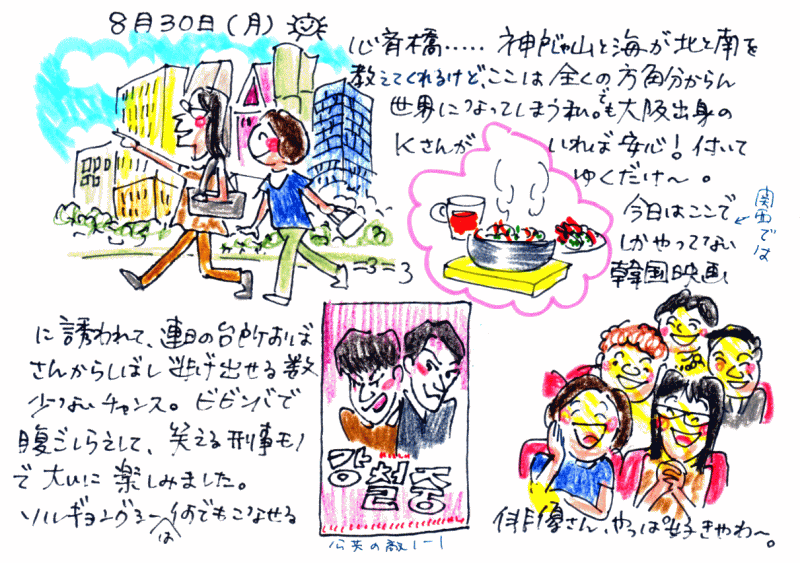 8月30日(月)
心斉橋‥‥‥ 神戸じゃ山と海が北と南を
教えてくれるけど、ここは全くの方角分からん
世界になってしまう私。でも大阪出身の
Kさんが いれば安心! 付いて
ゆくだけ〜。
今日はここで
関西では
しかやってない
韓国映画
に誘われて、連日の台所おば
さんからしばし逃げ出せる数
少ないチャンス。ビビンバで
腹ごしらえして、笑える刑事モノ
で大いに楽しみました。
ソルギョングは何でもこなせる
俳優さん、やっぱ好きやわ〜。
강철중
公共の敵1-1